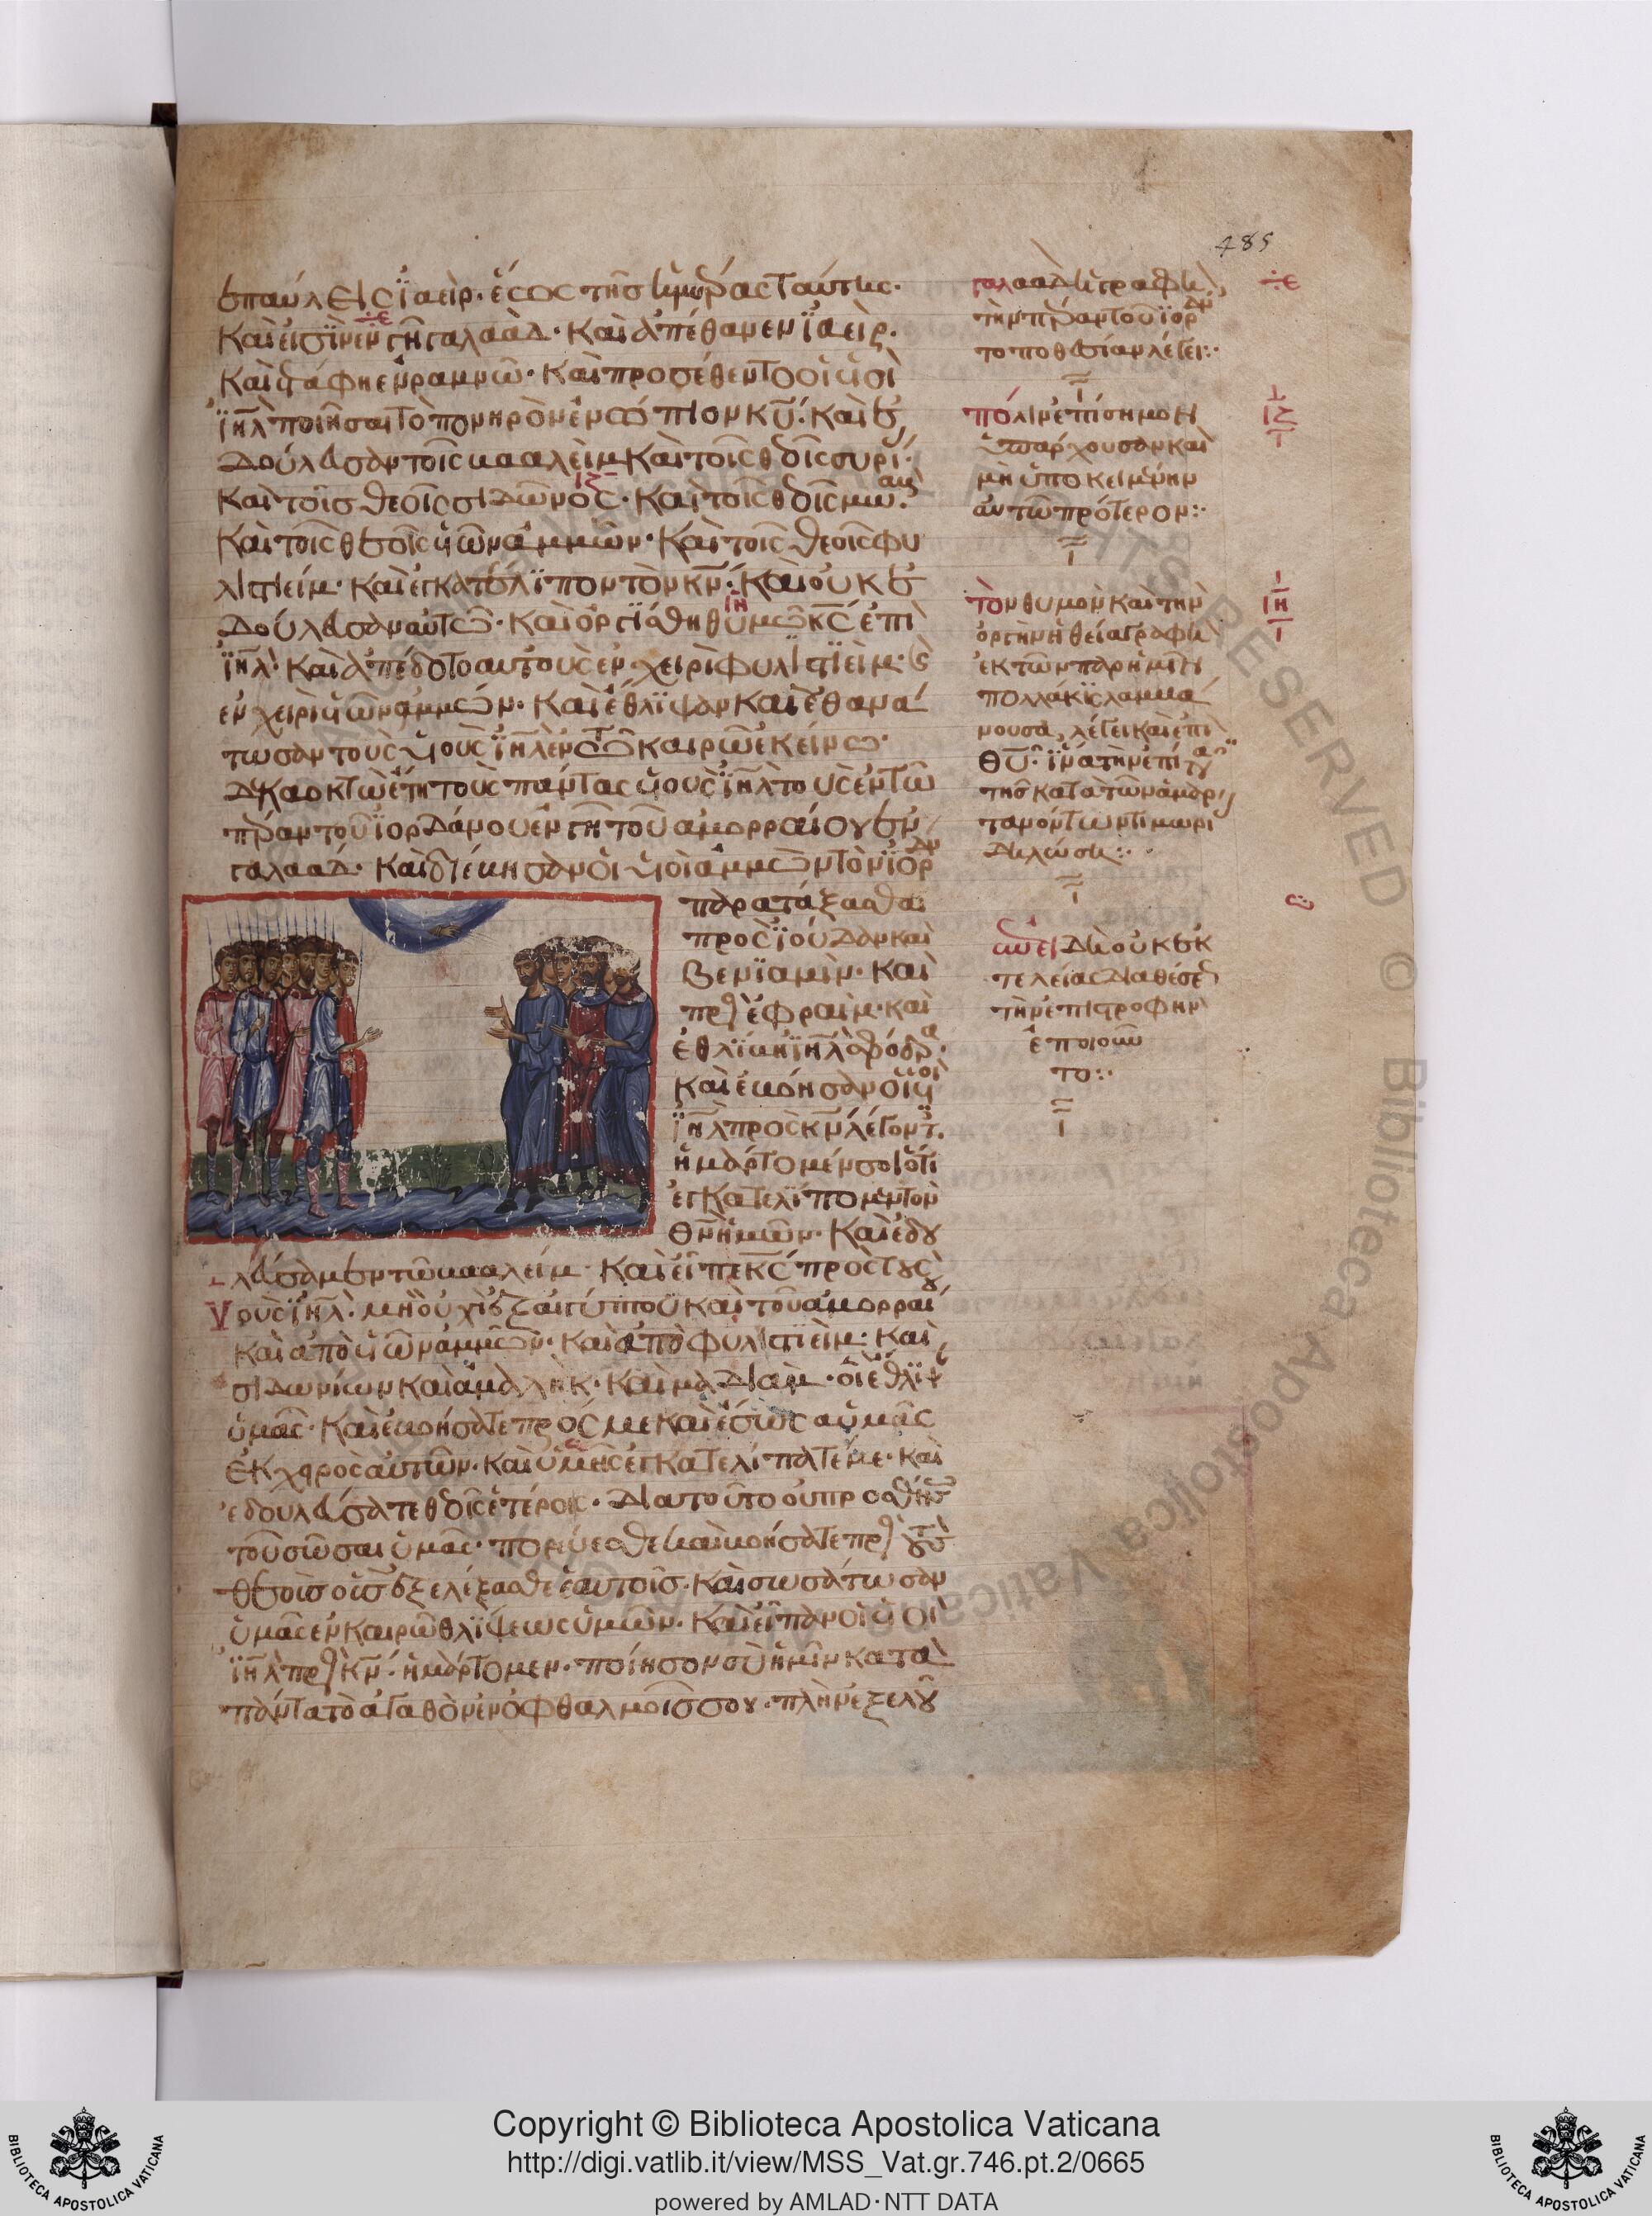 485
ἐπαύλεις ἰαείρ· ἕως τῆς ἡμέρας ταύτης·
καί εἰσιν ἐν γῆ γαλαάδ· καὶ ἀπέθανεν ἰαείρ·
καὶ ἐτάφη ἐν ραμνῶ· καὶ προσέθεντο οἱ υἱοὶ
ἰηλ ποιῆσαι τὸ πονηρὸν ἐνώπιον κυ· καὶ ἐ
δούλευσαν τοῖς βααλεὶμ καὶ τοῖς θεοῖς συρί
καὶ τοῖς θεοῖς σιδῶνος· καὶ τοῖς θεοῖς μωαβ·
καὶ τοῖς θεοῖς υἱῶν ἀμμών· καὶ τοῖς θεοῖς φυ
λιστιείμ· καὶ ἐγκατέλιπον τὸν κν· καὶ οὐκ ἐ
δούλευσαν αὐτῶ· καὶ ὀργίσθη θυμῶ κς ἐπὶ
ἰηλ· καὶ ἀπέδοτο αὐτοὺς ἐν χειρὶ φυλιστιείμ· καὶ
ἐν χειρὶ υἱῶν ἀμμών· καὶ ἔθλιψαν καὶ ἐθανά
τωσαν τοὺς υἱοὺς ἰηλ ἐν τῶ καιρῶ ἐκείνω·
δεκαοκτὼ ἔτη τοὺς πάντας υἱοὺς ἰηλ τοὺς ἐν τῶ
πέραν τοῦ ἰορδάνου ἐν γῆ τοῦ ἀμορραίου ἐν
γαλαάδ· καὶ διέβησαν οἱ υἱοὶ ἀμμὼν τὸν ἰορδαν
παρατάξασθαι
πρὸς ἰούδαν καὶ
βενιαμίν· καὶ
πρὸς ἐφραίμ· καὶ
ἐθλίβη ἰηλ σφόδρα·
καὶ ἐβόησαν οἱ υἱοὶ
ἰηλ πρὸς κν λέγοντ
ἡμάρτομέν σοι ὅτι
ἐγκατελίπομεν τὸν
θν ἡμῶν· καὶ ἐδου
λεύσαμεν τῶ βααλείμ· καὶ εἶπε κς πρὸς τοὺς
υἱοὺς ἰηλ· μὴ οὐχὶ ἐξ αἰγύπτου καὶ τοῦ ἀμορραίου
καὶ ἀπὸ υἱῶν ἀμμών· καὶ ἀπὸ φυλιστιείμ· καὶ
σιδωνίων καὶ ἀμαλήκ· καὶ μαδιάμ· οἳ ἔθλιψαν
ὑμᾶς· καὶ ἐβοήσατε πρός με καὶ ἔσωσα ὑμᾶς
ἐκ χειρὸς αὐτῶν· καὶ ὑμεῖς ἐγκατελίπατέ με· καὶ
ἐδουλεύσατε θεοῖς ἑτέροις· διατοῦτο οὐ προσθήσω
τοῦ σῶσαι ὑμᾶς· πορεύεσθε καὶ βοήσατε πρὸς τοὺς
θεοὺς οἷς ἐξελέξασθε ἑαυτοῖς· καὶ σωσάτωσαν
ὑμᾶς ἐν καιρῶ θλίψεως ὑμῶν· καὶ εἶπαν οἱ υἱοὶ
ἰηλ πρὸς κν· ἡμάρτομεν· ποίησον σὺ ἡμῖν κατὰ
πάντα τὸ ἀγαθὸν ἐν ὀφθαλμοῖς σου· πλὴν ἐξελοῦ
γαλαὰδ ἡ γραφὴ
τὴν πέραν τοῦ ἰορδαν
τοποθεσίαν λέγει:·
πόλιν ἐπίσημον
ὑπάρχουσαν καὶ
μὴ ὑποκειμένην
αὐτῶ πρότερον:·
ιζ
τὸν θυμὸν καὶ τὴν
ὀργὴν ἡ θεία γραφὴ
ἐκ τῶν παρ' ἡμῖν
πολλάκις λαμβά
νουσα, λέγει καὶ ἐπὶ
θυ· ἵνα τὴν ἐπίτασιν
τῆς κατὰ τῶν ἁμαρ
τανόντων τιμωρί
δηλώση:·
ιη
ὡσεὶ δὴ οὐκ ἐκ
τελείας διαθέσεως
τὴν ἐπιστροφὴν
ἐποιοῦν
το:·
Copyright © Biblioteca Apostolica Vaticana
http://digi.vatlib.it/view/MSS_Vat.gr.746.pt.2/0665
powered by AMLAD·NTT DATA
BIBLIOTECA APOSTOLICA VATICANA
BIBLIOTECA APOSTOLICA VATICANA